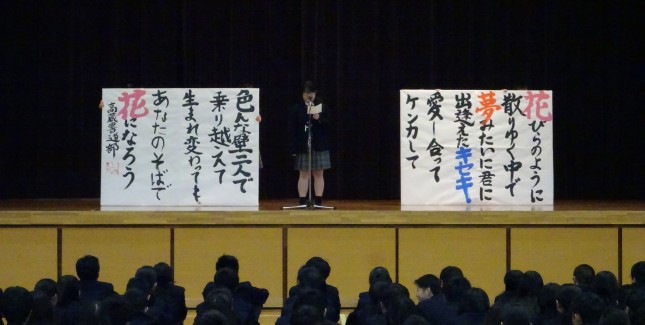 花びらのように
散りゆく中で
夢みたいに君に
出逢えたキセキ
愛し合って
ケンカして
色んな壁二人で
乗り越えて
生まれ変わっても
あなたのそばで
花になろう
高蔵書道部